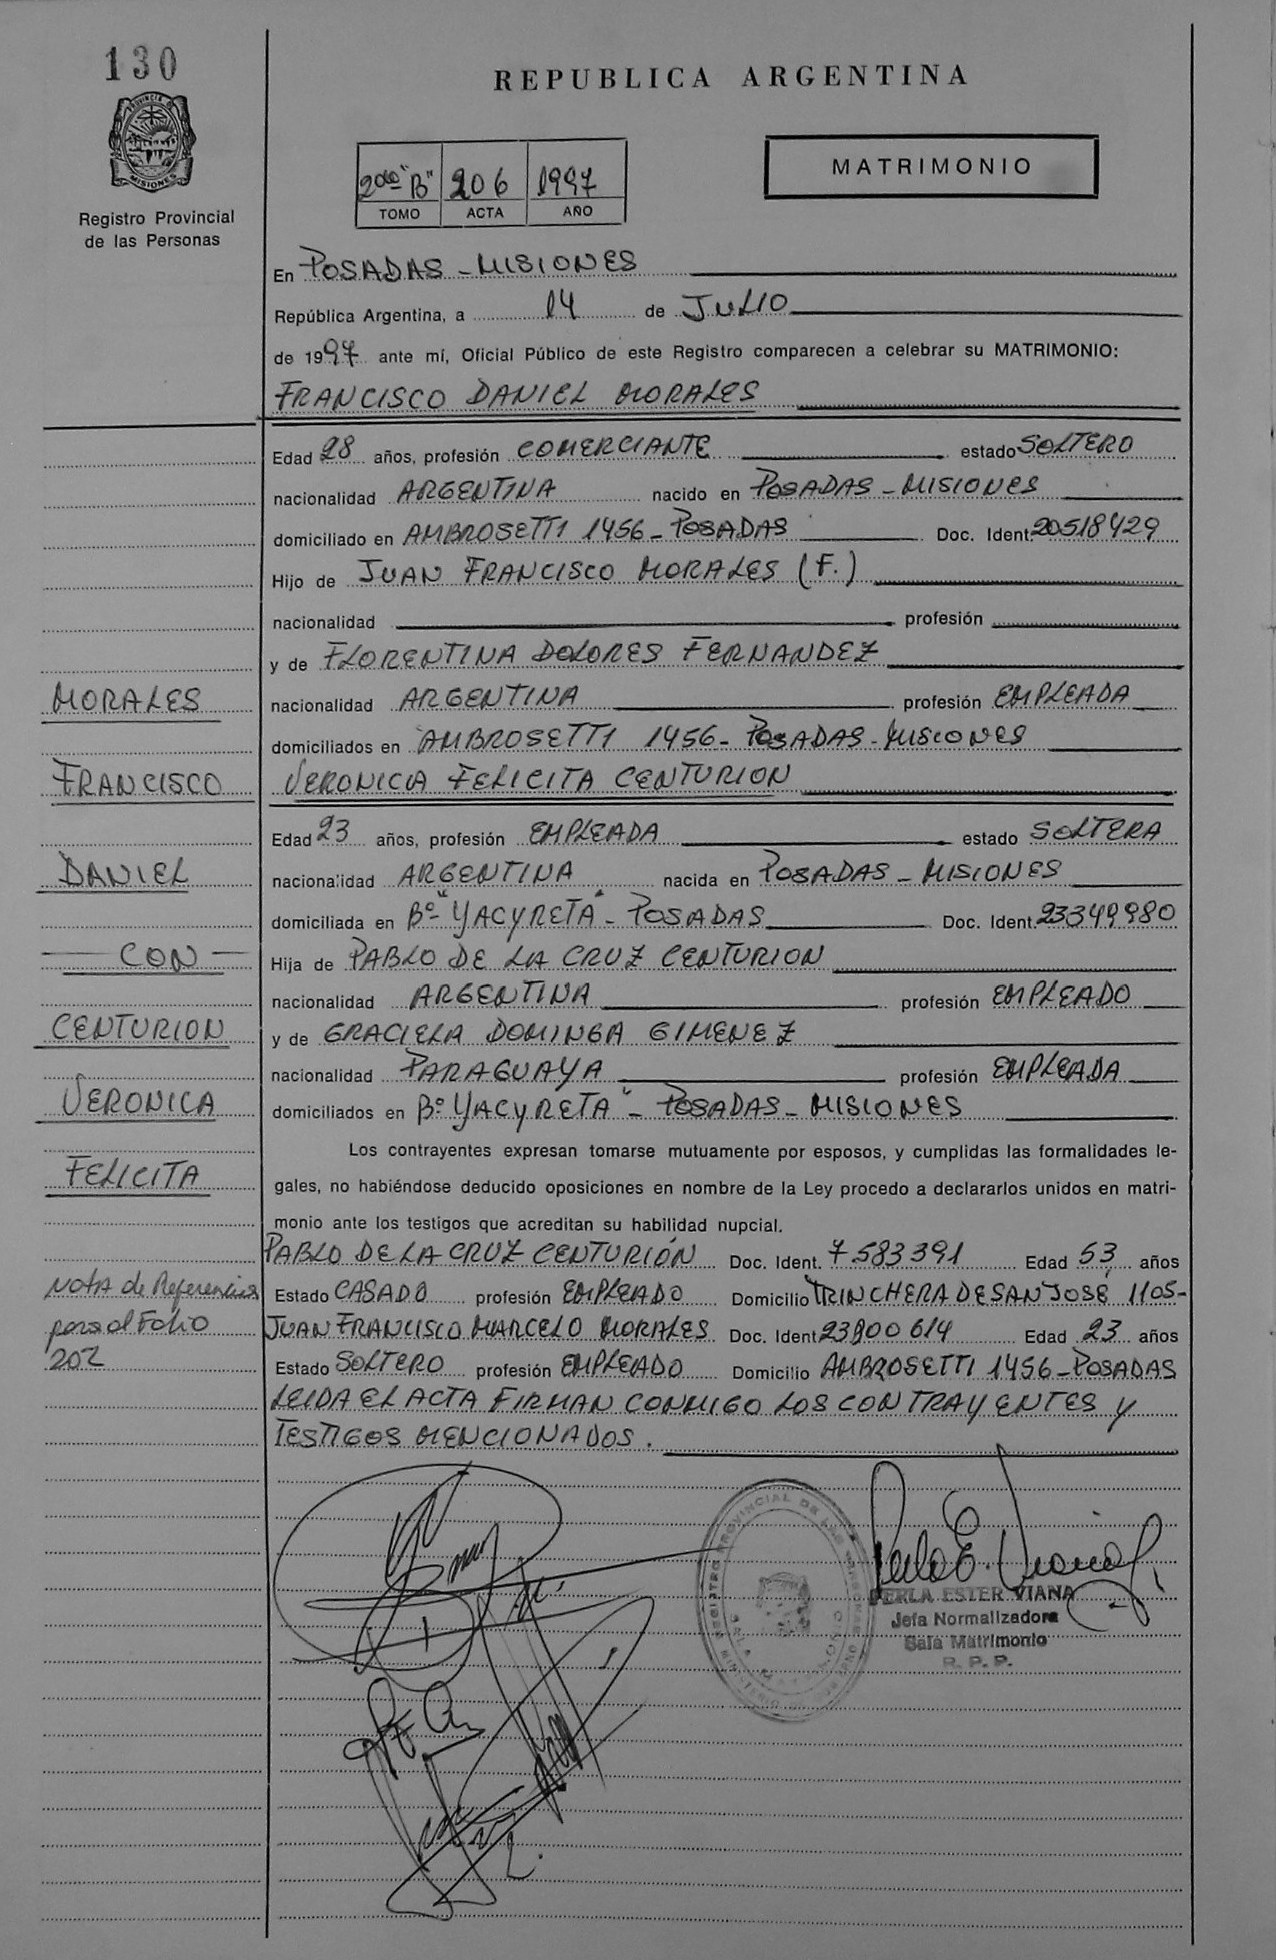 130
REPUBLICA ARGENTINA
PROVINCIA DE MISIONES
Registro Provincial
de las Personas
2do "B" 206 1997
TOMO ACTA AÑO
MATRIMONIO
En POSADAS - MISIONES
República Argentina, a 14 de JULIO
de 1997 ante mí, Oficial Público de este Registro comparecen a celebrar su MATRIMONIO:
FRANCISCO DANIEL MORALES
Edad 28 años, profesión COMERCIANTE estado SOLTERO
nacionalidad ARGENTINA nacido en POSADAS - MISIONES
domiciliado en AMBROSETTI 1456 - POSADAS Doc. Ident. 20518429
Hijo de JUAN FRANCISCO MORALES (F.)
nacionalidad profesión
y de FLORENTINA DOLORES FERNANDEZ
nacionalidad ARGENTINA profesión EMPLEADA
domiciliados en AMBROSETTI 1456 - POSADAS - MISIONES
VERONICA FELICITA CENTURION
Edad 23 años, profesión EMPLEADA estado SOLTERA
nacionalidad ARGENTINA nacida en POSADAS - MISIONES
domiciliada en Bº "YACYRETA" - POSADAS Doc. Ident. 23349980
Hija de PABLO DE LA CRUZ CENTURION
nacionalidad ARGENTINA profesión EMPLEADO
y de GRACIELA DOMINGA GIMENEZ
nacionalidad PARAGUAYA profesión EMPLEADA
domiciliados en Bº YACYRETA" - POSADAS - MISIONES
Los contrayentes expresan tomarse mutuamente por esposos, y cumplidas las formalidades le-
gales, no habiéndose deducido oposiciones en nombre de la Ley procedo a declararlos unidos en matri-
monio ante los testigos que acreditan su habilidad nupcial.
PABLO DE LA CRUZ CENTURIÓN Doc. Ident. 7583391 Edad 53 años
Estado CASADO profesión EMPLEADO Domicilio TRINCHERA DE SAN JOSÉ 1105-
JUAN FRANCISCO MARCELO MORALES Doc. Ident 23800614 Edad 23 años
Estado SOLTERO profesión EMPLEADO Domicilio AMBROSETTI 1456 - POSADAS
LEIDA EL ACTA FIRMAN CONMIGO LOS CONTRAYENTES Y
TESTIGOS MENCIONADOS.
MORALES
FRANCISCO
DANIEL
— CON —
CENTURION
VERONICA
FELICITA
Nota de Referencias
para al Folio
202
REGISTRO PROVINCIAL DE LAS PERSONAS
Perla E. Viana
PERLA ESTER VIANA
Jefa Normalizadora
Sala Matrimonio
R. P. P.